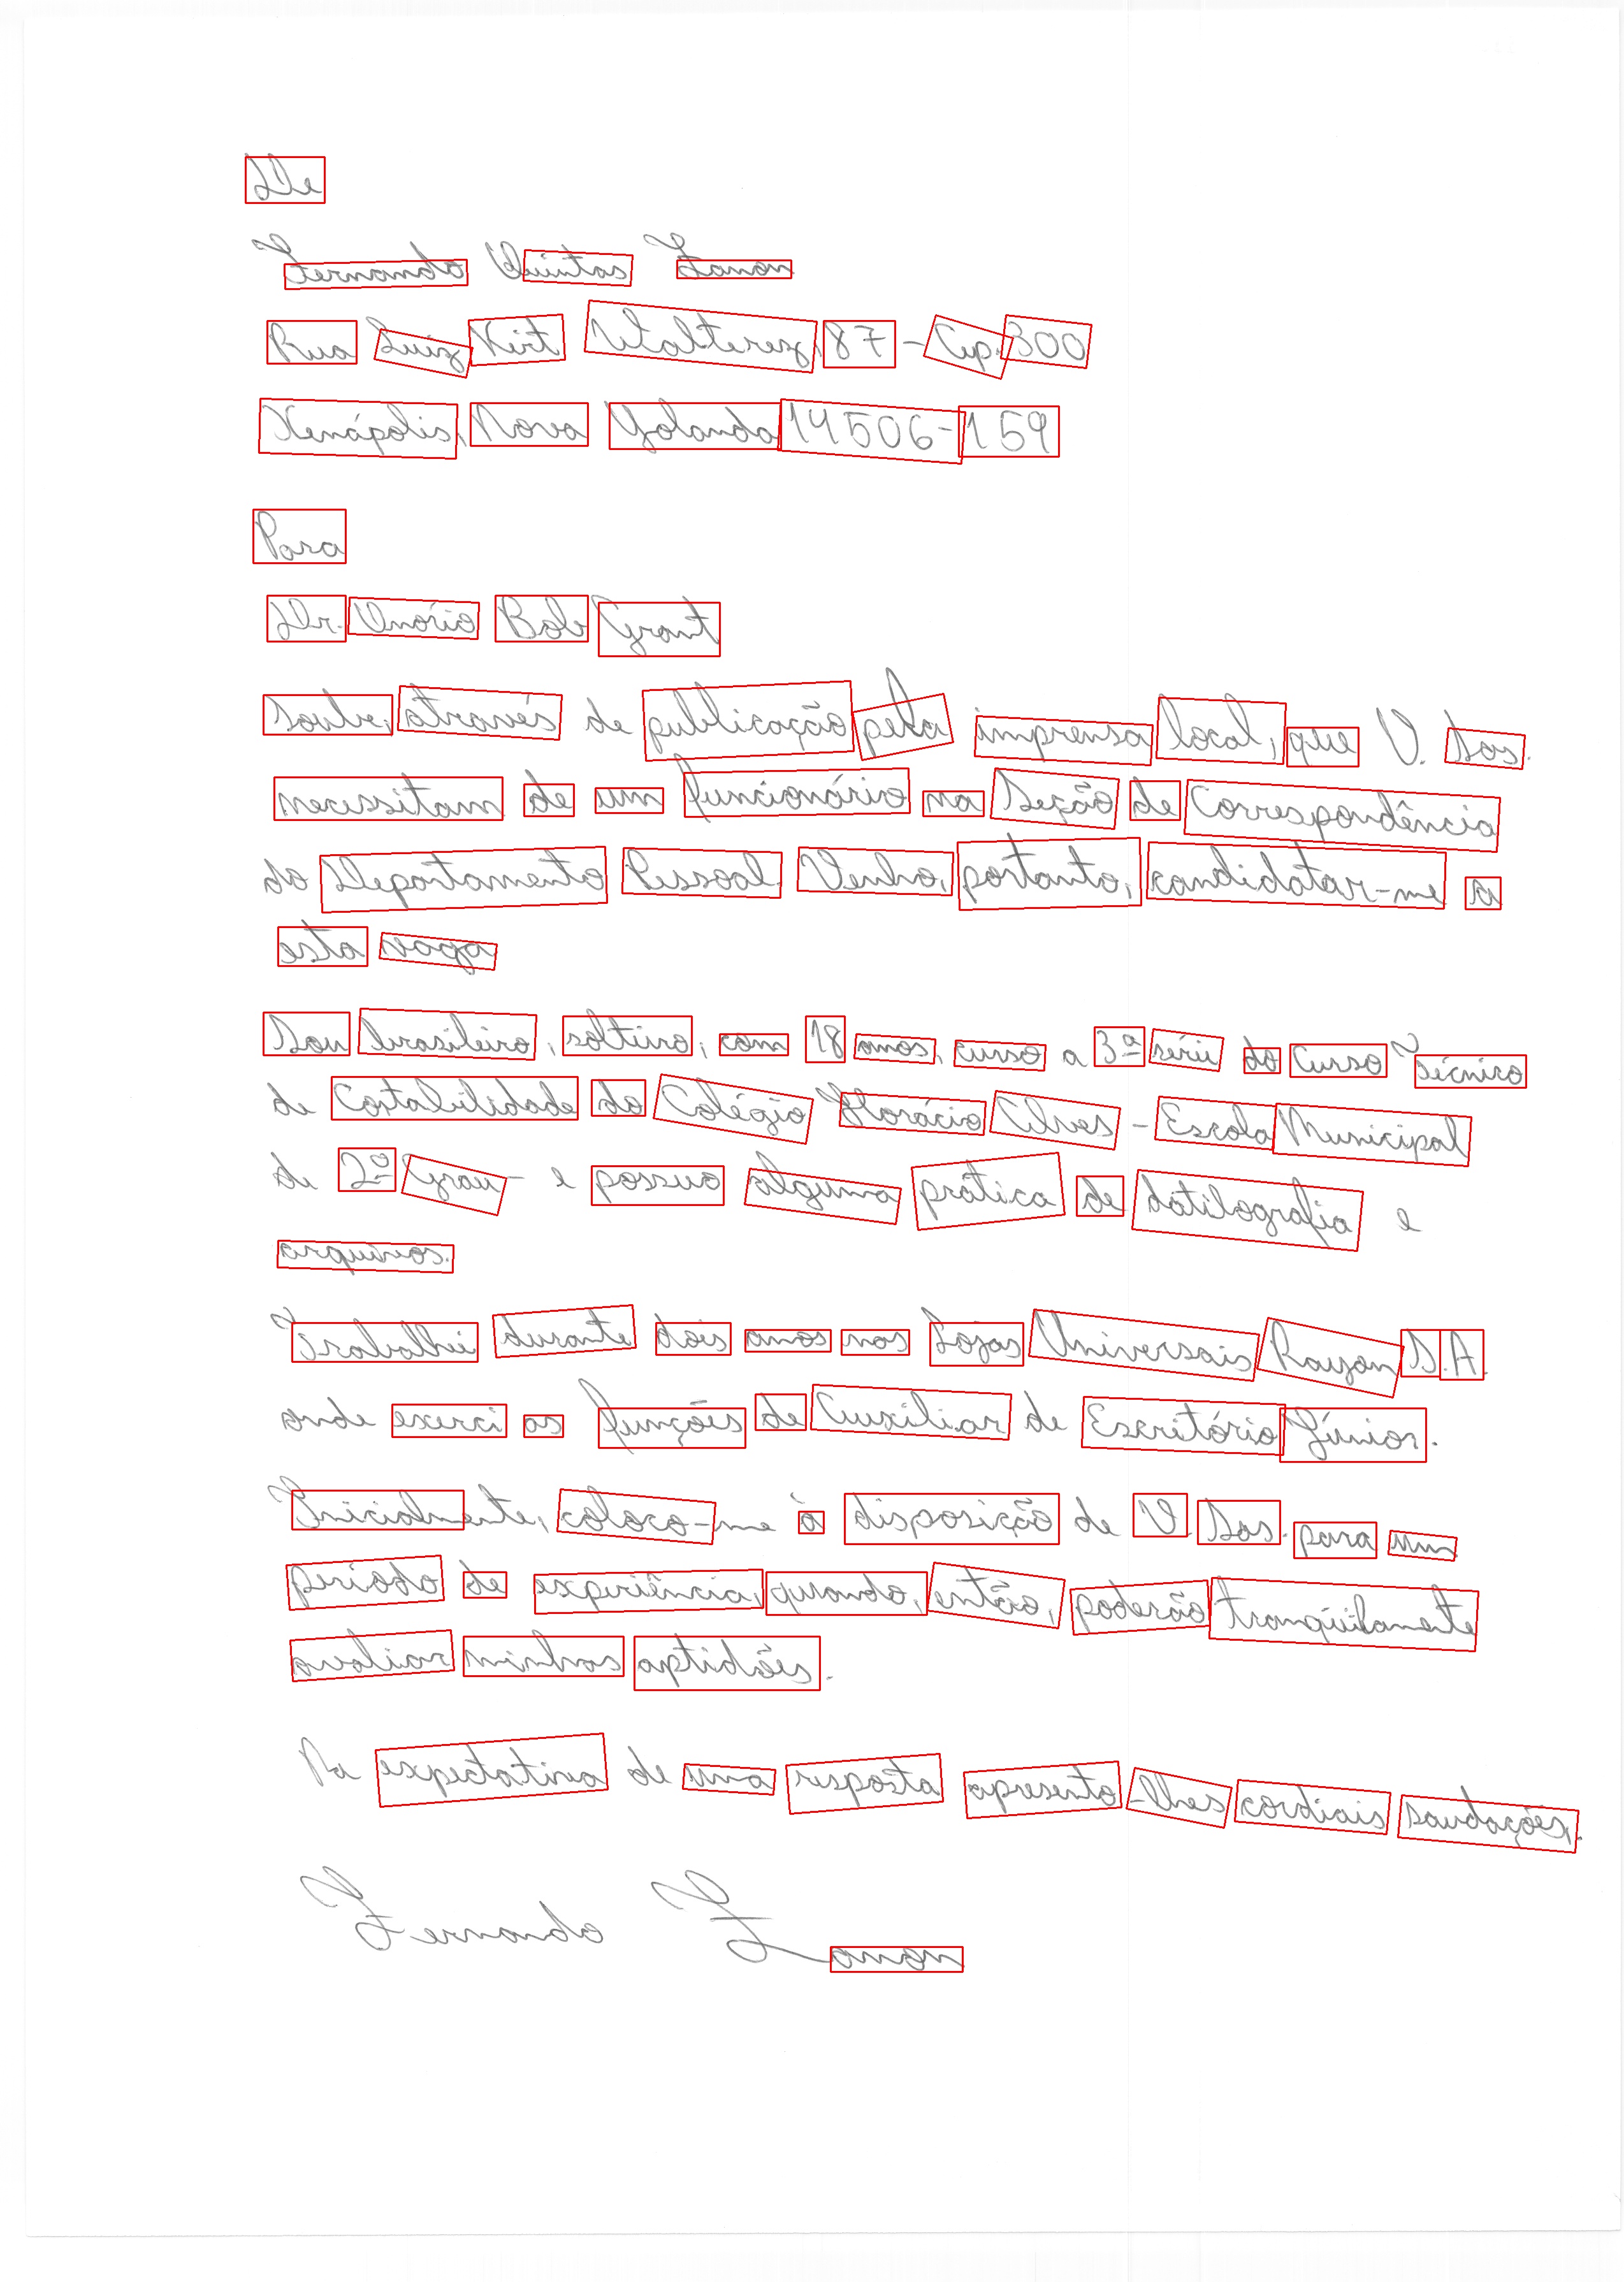 De
Fernando Quintas Zanon
Rua Luiz Kirt Walterez, 87 - Cep. 300
Xenápolis, Nova Yolanda 14506-159
Para
Dr. Onório Bob Grant
Soube, através de publicação pela imprensa local, que V. Sas.
necessitam de um funcionário na Seção de Correspondência
do Departamento Pessoal. Venho, portanto, candidatar-me a
esta vaga
Sou brasileiro, solteiro, com 18 anos, curso a 3ª série do Curso Técnico
de Contabilidade do Colégio Horácio Alves - Escola Municipal
de 2º Grau - e possuo alguma prática de datilografia e
arquivos.
Trabalhei durante dois anos nas Lojas Universais Rayon S.A.
onde exerci as funções de Auxiliar de Escritório Júnior.
Inicialmente, coloco-me à disposição de V. Sas. para um
período de experiência, quando, então, poderão tranqüilamente
avaliar minhas aptidões.
Na expectativa de uma resposta apresento-lhes cordiais saudações.
Fernando Zanon